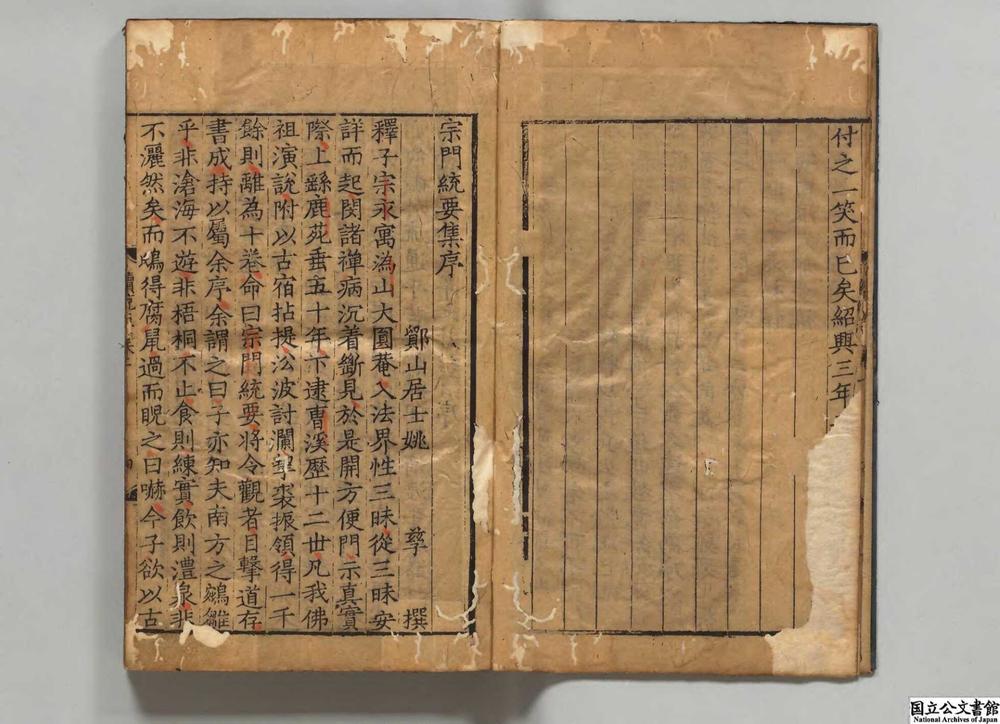 付之一笑而已矣紹興三年
宗門統要集序
鄮山居士姚 孳 撰
釋子宗永寓溈山大圓菴入法界性三昧從三昧安
詳而起閔諸禪病沉着斷見於是開方便門示真實
際上繇鹿苑垂五十年下逮曹溪歷十二世凡我佛
祖演說附以古宿拈提㳂波討瀾挈裘振領得一千
餘則離為十卷命曰宗門統要將令觀者目擊道存
書成持以屬余序余謂之曰子亦知夫南方之鵷雛
乎非滄海不遊非梧桐不止食則練實飲則澧泉非
不灑然矣而鴟得腐鼠過而睨之曰嚇今子欲以古
国立公文書館
National Archives of Japan